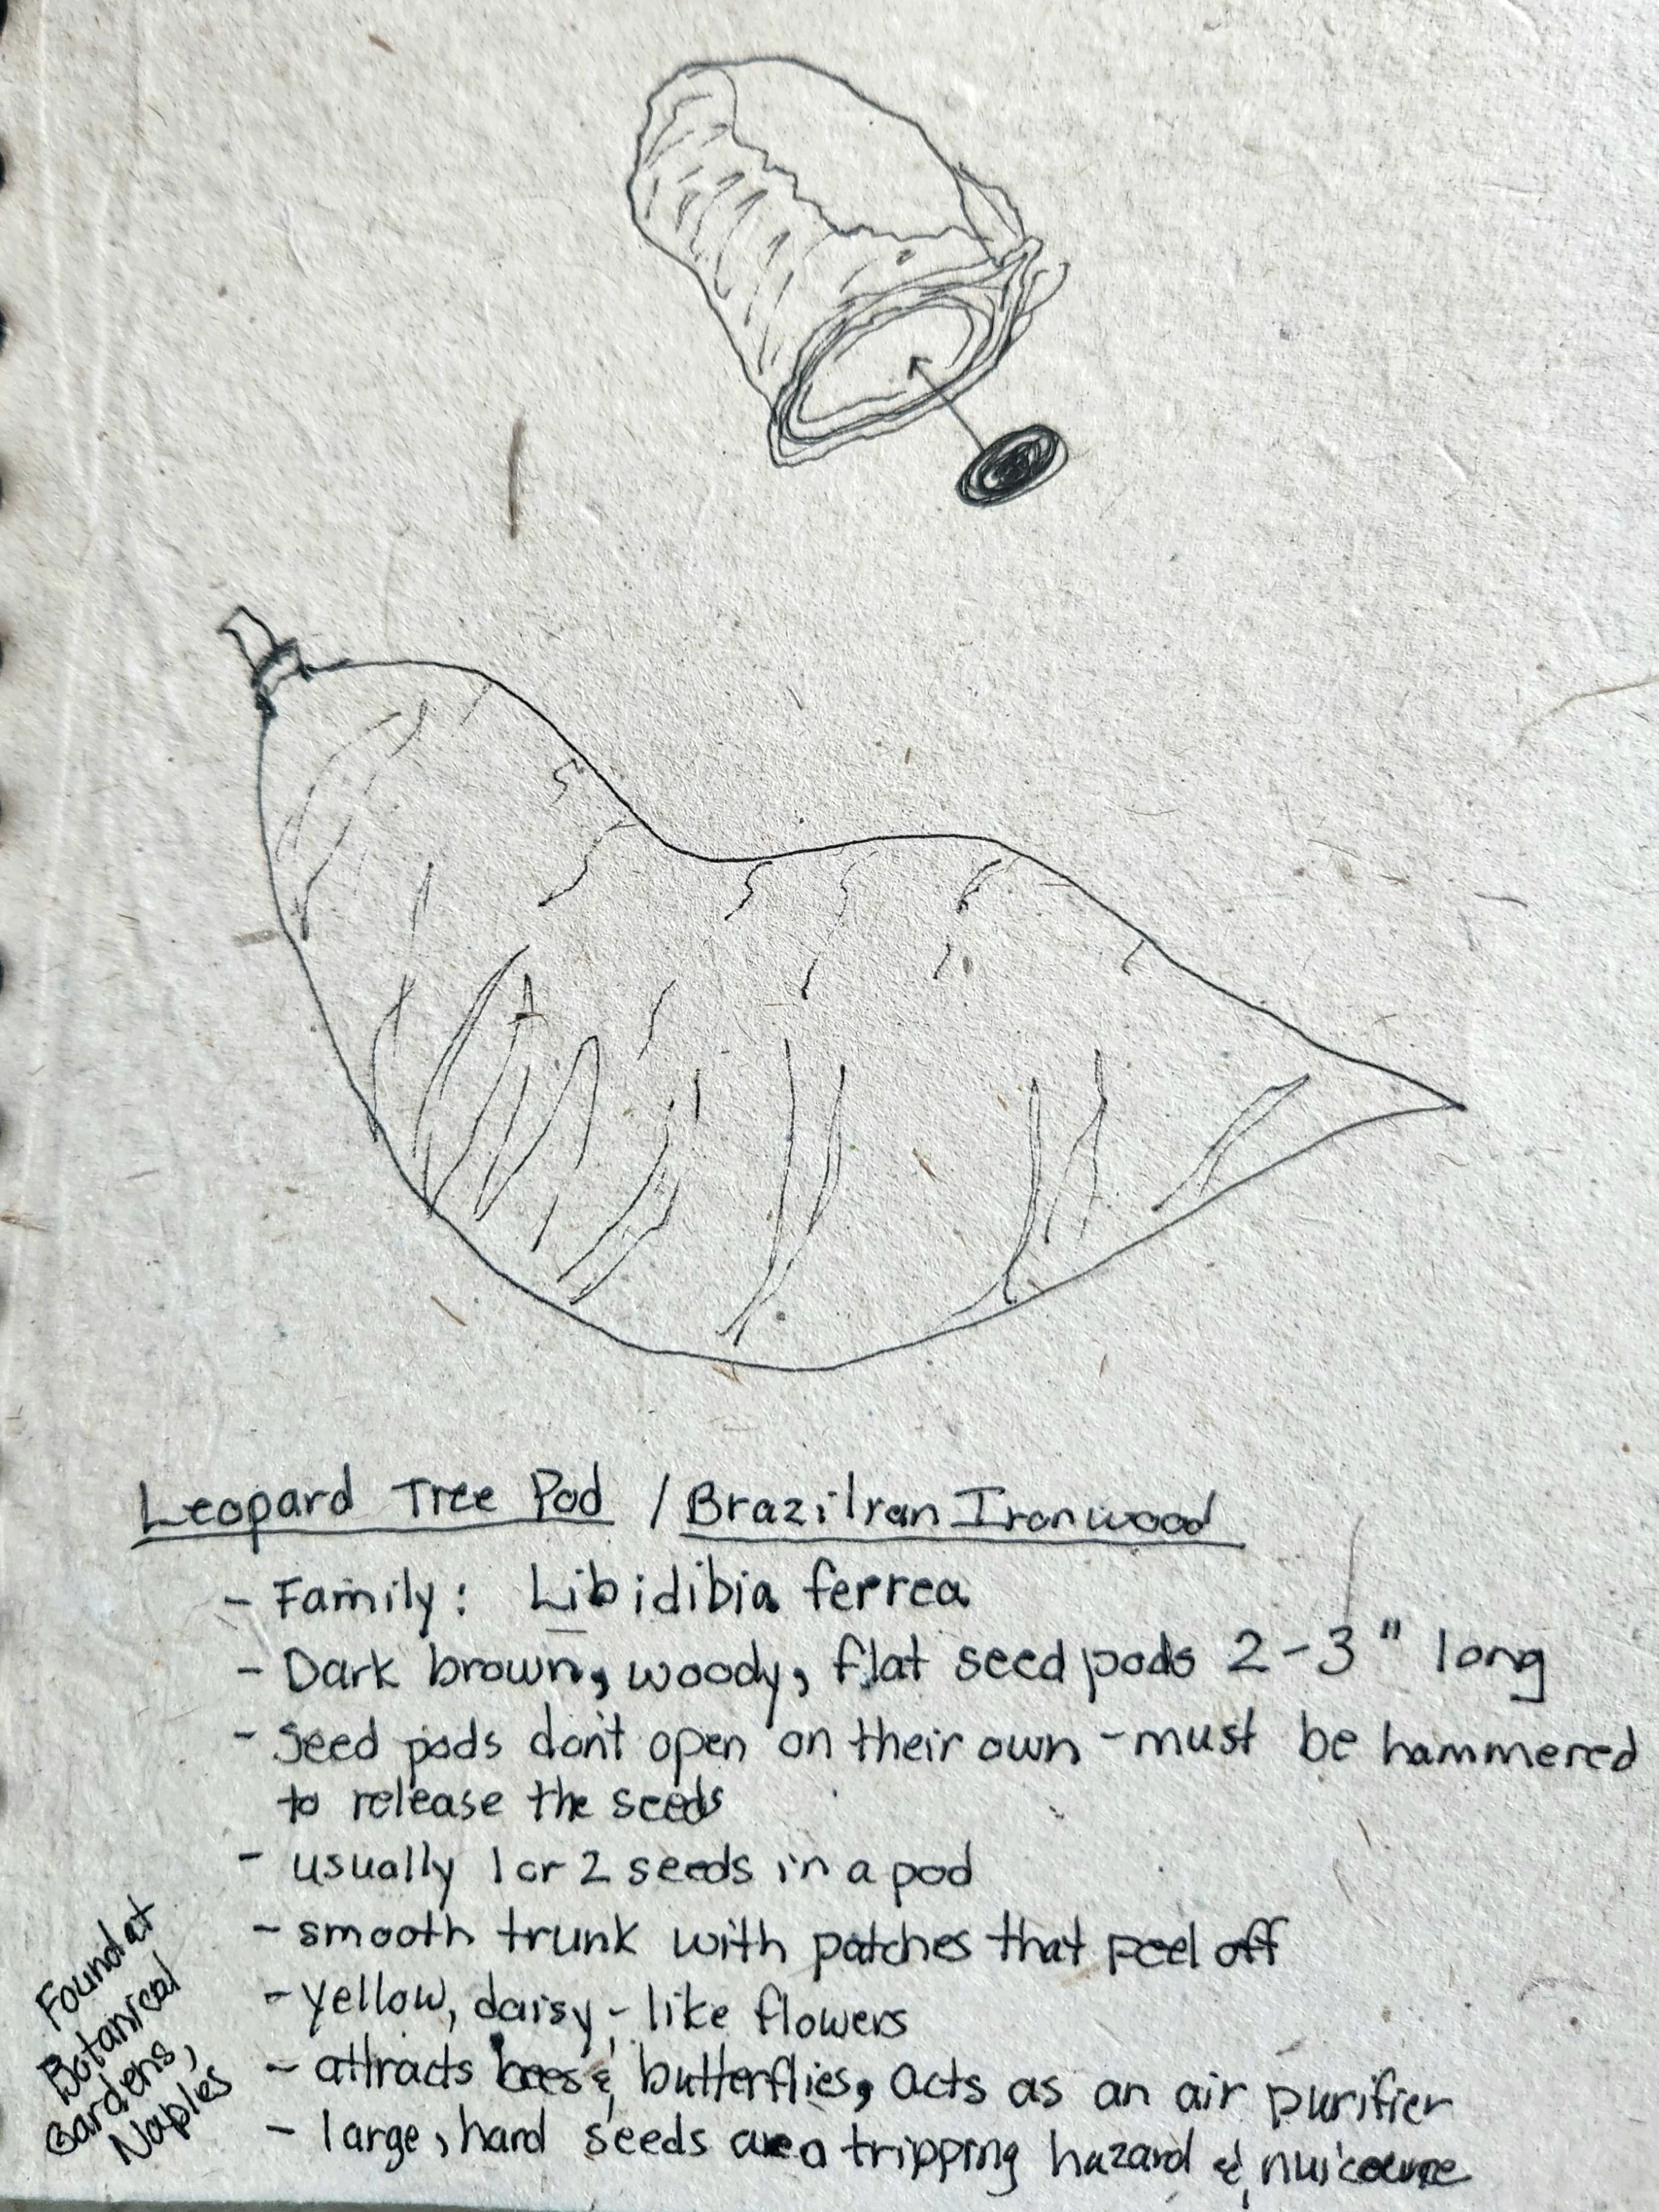 Leopard Tree Pod / Brazilian Ironwood
- Family: Libidibia ferrea
- Dark brown, woody, flat seed pods 2-3" long
- Seed pods don't open on their own - must be hammered
to release the seeds
- usually 1 or 2 seeds in a pod
- smooth trunk with patches that peel off
- yellow, daisy-like flowers
- attracts bees & butterflies, acts as an air purifier
- large, hard seeds are a tripping hazard &
Found at
Botanical
Gardens,
Naples